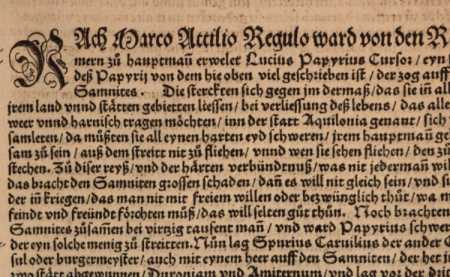 NAch Marco Attilio Regulo ward von den R
mern zů hauptmañ erwelet Lucius Papyrius Cursor / eyn
deß Papyrij von dem hie oben viel geschrieben ist / der zog auff
Samnites. Die sterckten sich gegen jm dermaß / das sie iñ all
jrem land vnnd stätten gebietten liessen / bei verliessung deß lebens / das alle
weer vnnd harnisch tragen möchten / inn der statt Aquilonia genant / sich
samleten / da můßten sie all eynen harten eyd schweren / jrem hauptmañ ge
sam zů sein / auß dem streitt nit zů fliehen / vnnd wen sie sehen fliehen / den zů
stechen. Zů diser reyß / vnd der härten verbündtnuß / was nit jederman will
das bracht den Samniten grossen schaden / dañ es will nit gleich sein / vnd
der iñ kriegen / das man nit mit freiem willen oder bezwünglich thůt / wa
feindt vnd freündt förchten můß / das will selten gůt thůn. Noch brachten
Samnites zůsamẽn bei viertzig tausent mañ / vnd ward Papyrius schwer
der eyn solcht menig zů streitten. Nůn lag Spurius Caruilius der ander
sul oder burgermeyster / auch mit eynem heer auff den Samniten / der het
zwo stätt abgewunnen / Duroniam vnd Amiternum / vnd lag vor der